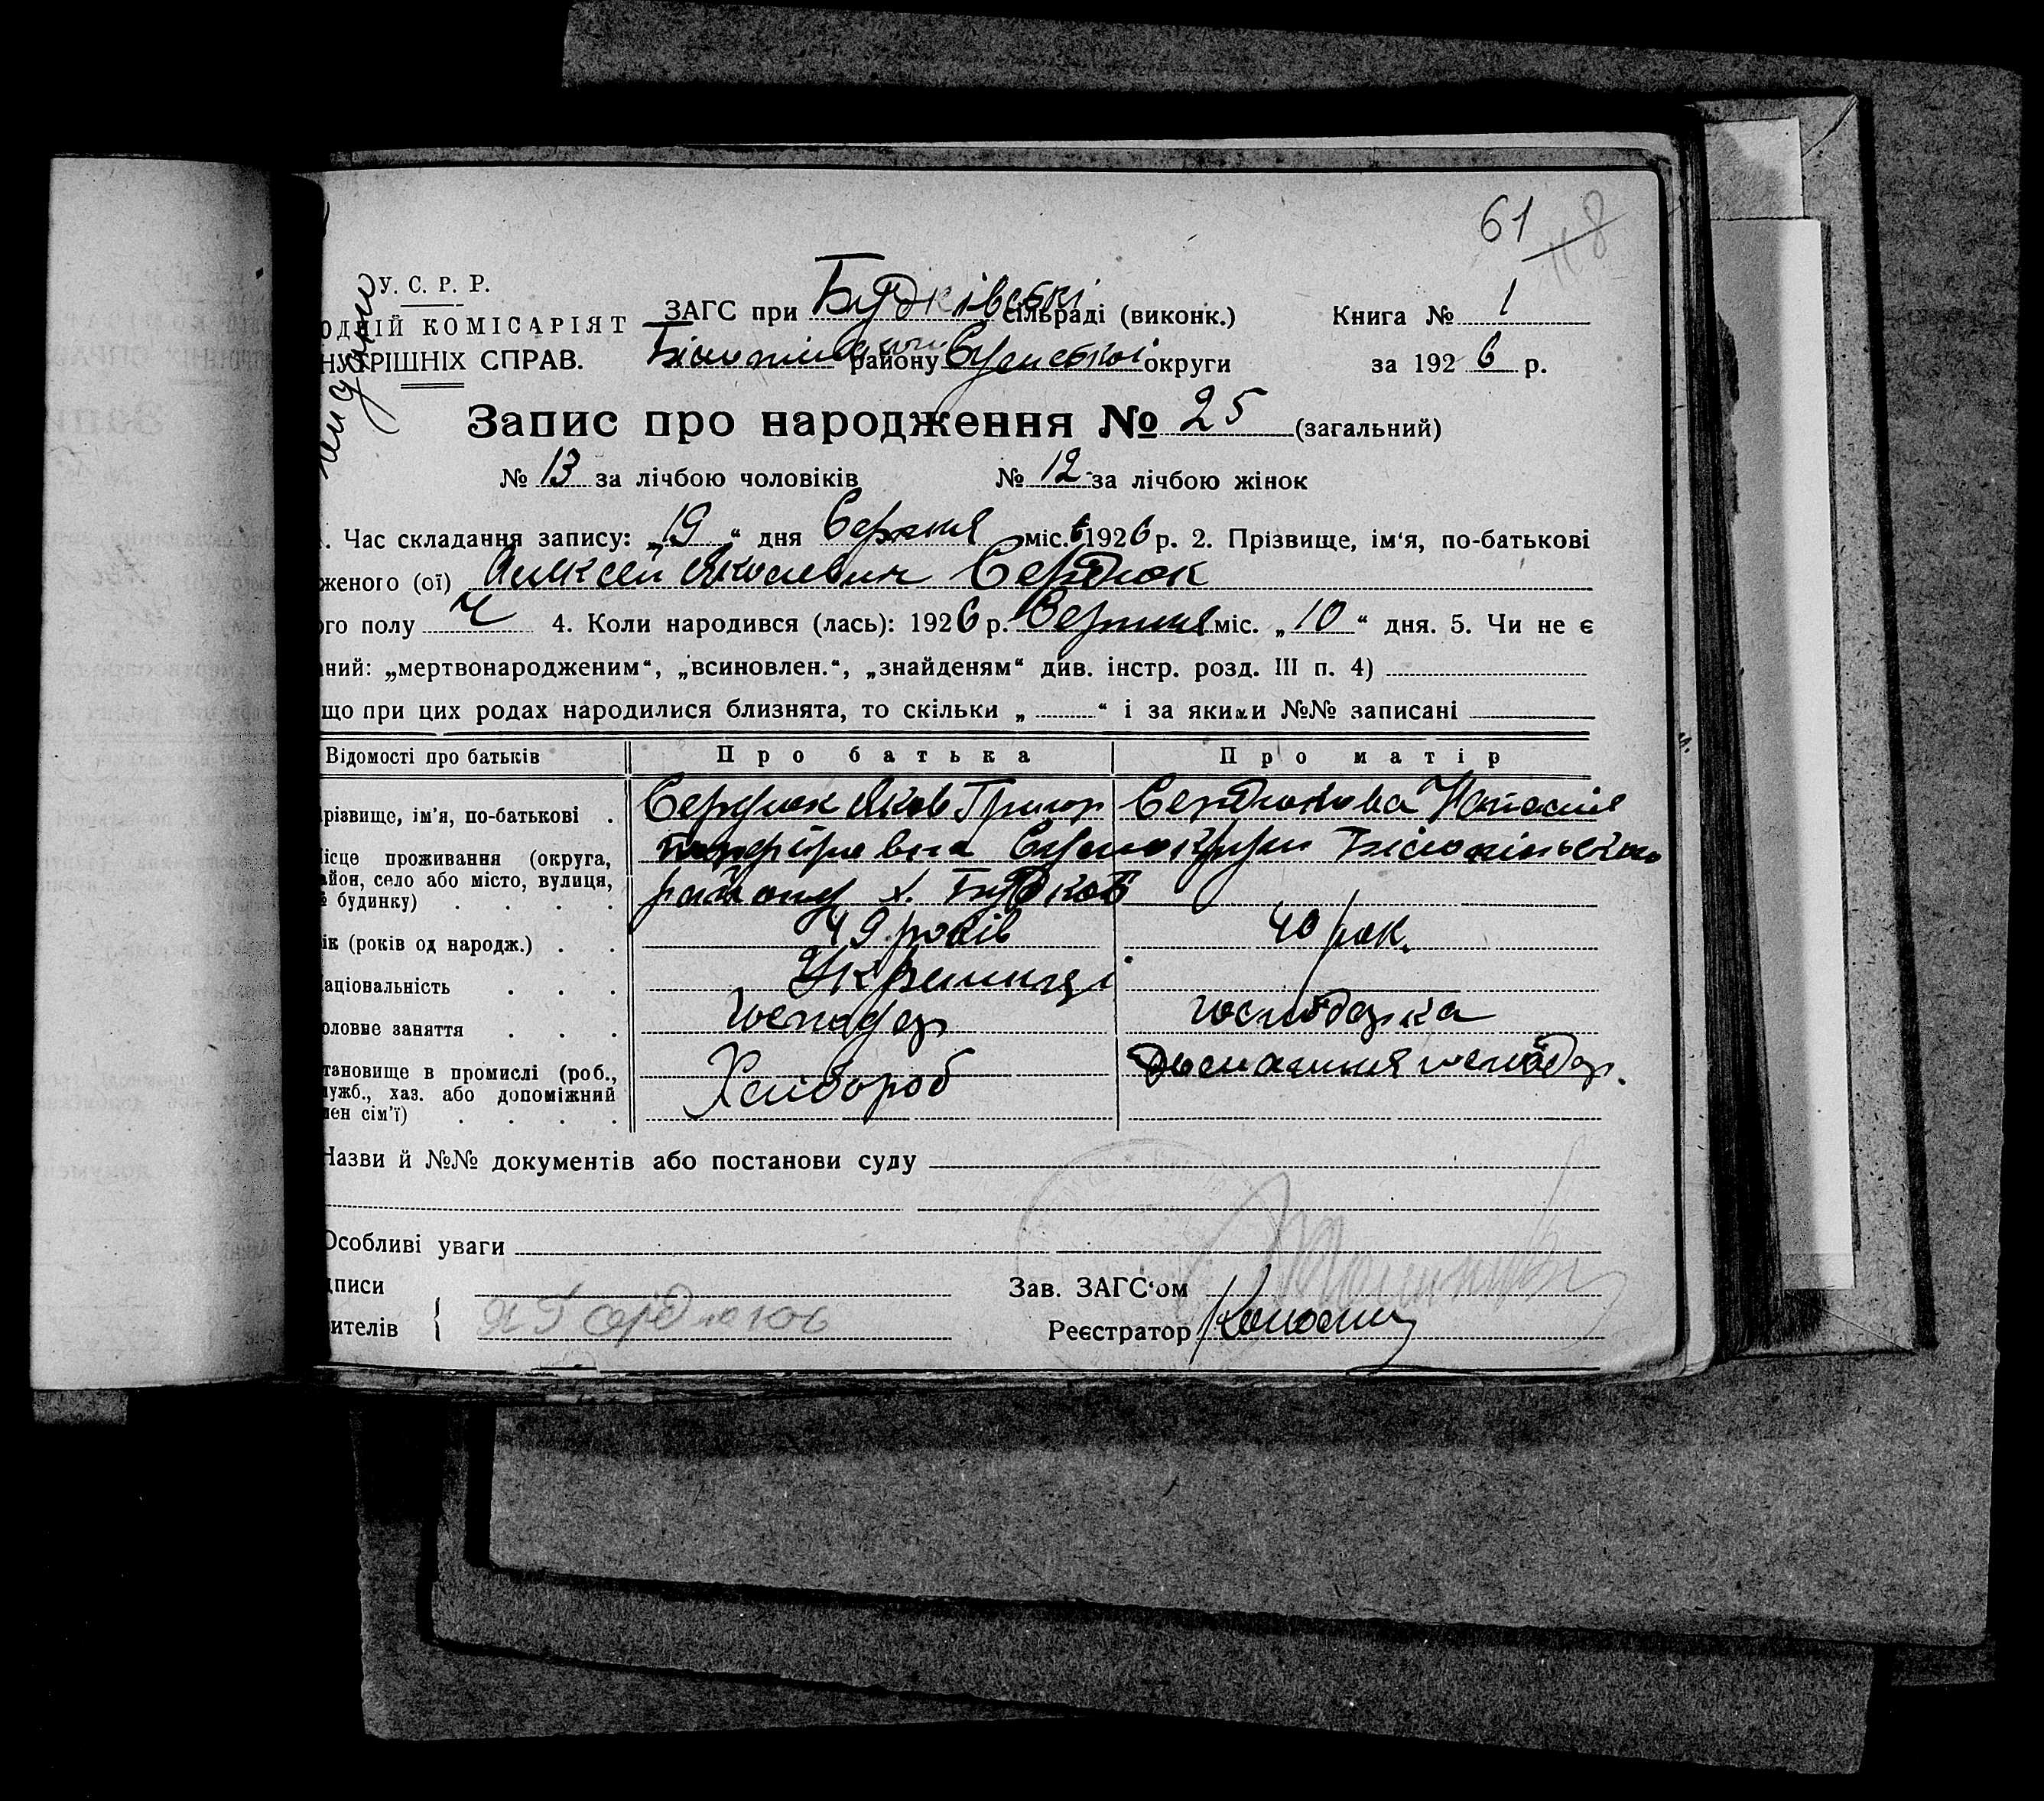 61
118
У. С. Р. Р.
ОДНІЙ КОМІСАРІЯТ
НУТРІШНІХ СПРАВ.
ЗАГС при Будківські сільраді (виконк.)
району Сумської округи
Книга № 1
за 1926 р.
Запис про народження № 25 (загальний)
№ 13 за лічбою чоловіків № 12 за лічбою жінок
. Час складання запису: „19“ дня Серпня міс. 1926 р. 2. Прізвище, ім‘я, по-батькові
женого (ої) Алексей Яковлевич Сердюк
ого полу Ч 4. Коли народився (лась): 1926 р. Серпня міс. „10“ дня. 5. Чи не є
аний: „мертвонародженим“, „всиновлен.“, „знайденям“ див. інстр. розд. III п. 4)
що при цих родах народилися близнята, то скільки „ “ і за якими №№ записані
Відомості про батьків Про батька Про матір
різвище, ім’я, по-батькові . Сердюк Яков Григор Сердюкова Наталія
ісце проживання (округа, Порфіровна Сумокруги Білопільського
айон, село або місто, вулиця, району х. Будков
№ будинку) . . . .
ік (років од народж.) . . 49 років 40 рок.
аціональність . . . Українці
оловне заняття . . . господар господарка
тановище в промислі (роб., Хлібороб домашня господар.
лужб., хаз. або допоміжний
лен сім’ї) . . . .
Назви й №№ документів або постанови суду
Особливі уваги
дписи
ителів
Я Г Сердюков
Зав. ЗАГС‘ом
Реєстратор